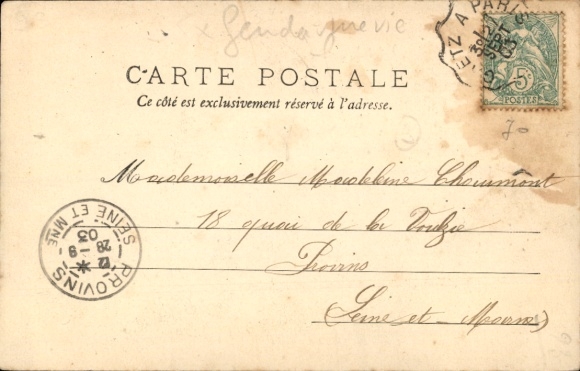 Gendarmerie
ETZ A PARI
5c
POSTES
CARTE POSTALE
Ce côté est exclusivement réservé à l'adresse.
70
Mademoiselle Madeleine Chaumont
18 quai de la Voulzie
Provins
(Seine-et-Marne)
PROVINS
SEINE ET MNE
12
28 - 8
03